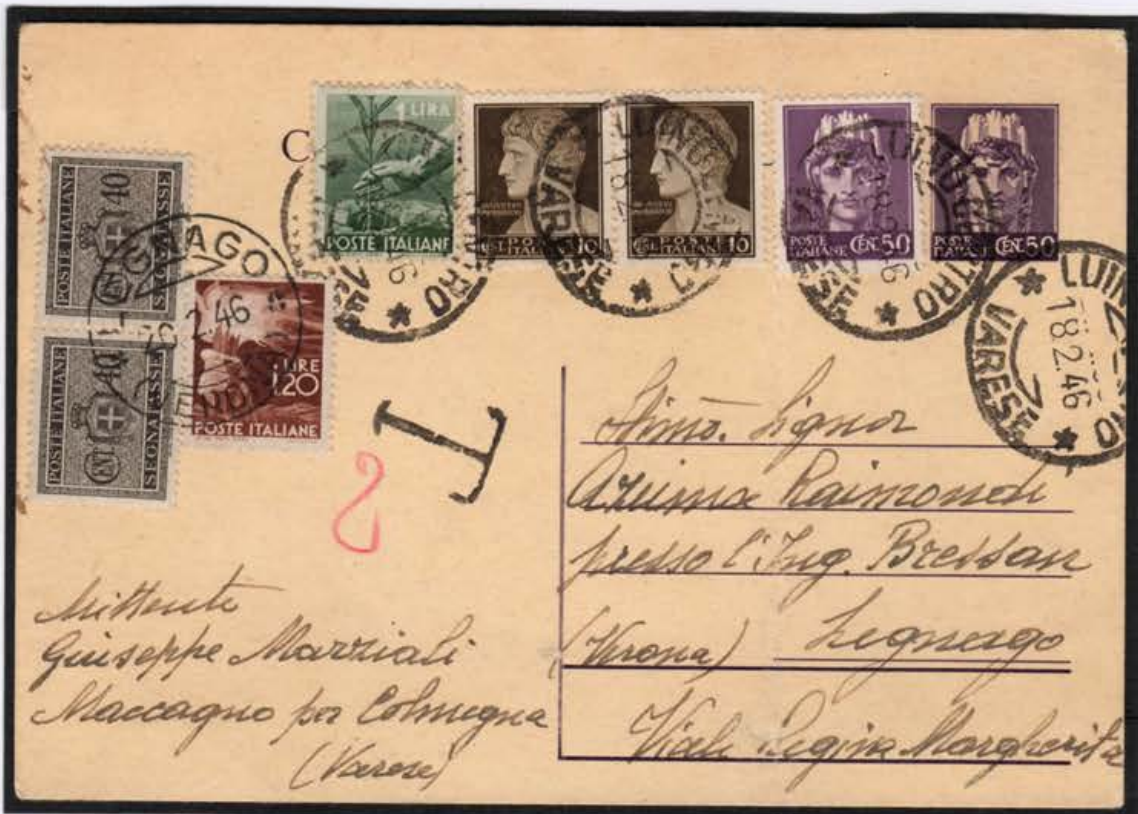 C
1 LIRA
POSTE ITALIANE
POSTE ITALIANE
CENT. 10
POSTE ITALIANE
CENT. 10
POSTE ITALIANE
CEN. 50
POSTE ITALIANE
CEN. 50
LUINO CENTRO
18.2.46
* VARESE *
POSTE ITALIANE
CENT. 40
SEGNATASSE
POSTE ITALIANE
CENT. 40
SEGNATASSE
LEGNAGO
2.46
LIRE
1.20
POSTE ITALIANE
T
2
Stimo. Signor
Raimondi
presso l'Ing. Bressan
(Verona) Legnago
Viale Regina Margherita
Mittente
Giuseppe Marziali
Maccagno per Colmegna
(Varese)